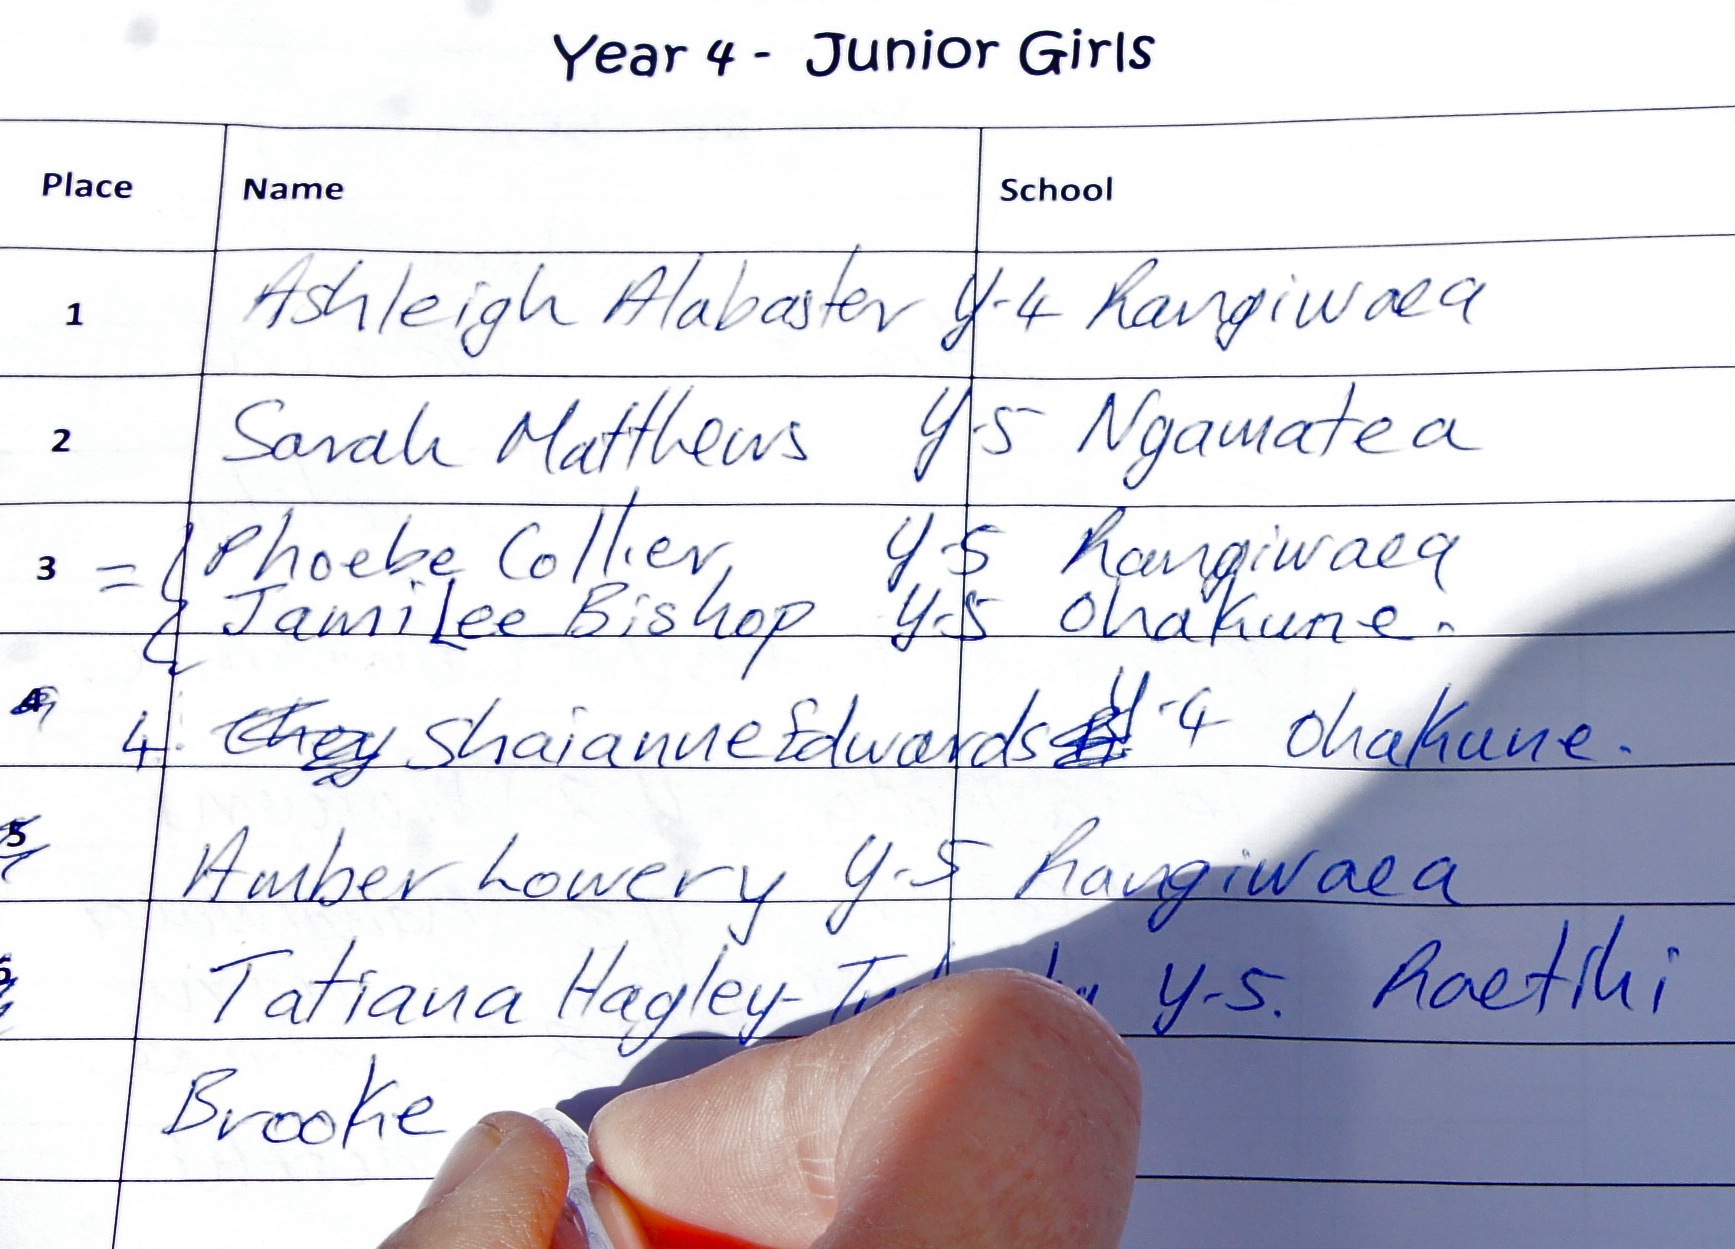 Year 4 - Junior Girls
Place Name School
1 Ashleigh Alabaster Y-4 Rangiwaea
2 Sarah Matthews Y-5 Ngamatea
3 = { Phoebe Collier Y-5 Rangiwaea
{ JamiLee Bishop Y-5 Ohakune.
4 4. Shaianne Edwards Y-4 Ohakune.
5 Amber Lowery Y-5 Rangiwaea
6 Tatiana Hagley- Y-5. Raetihi
Brooke